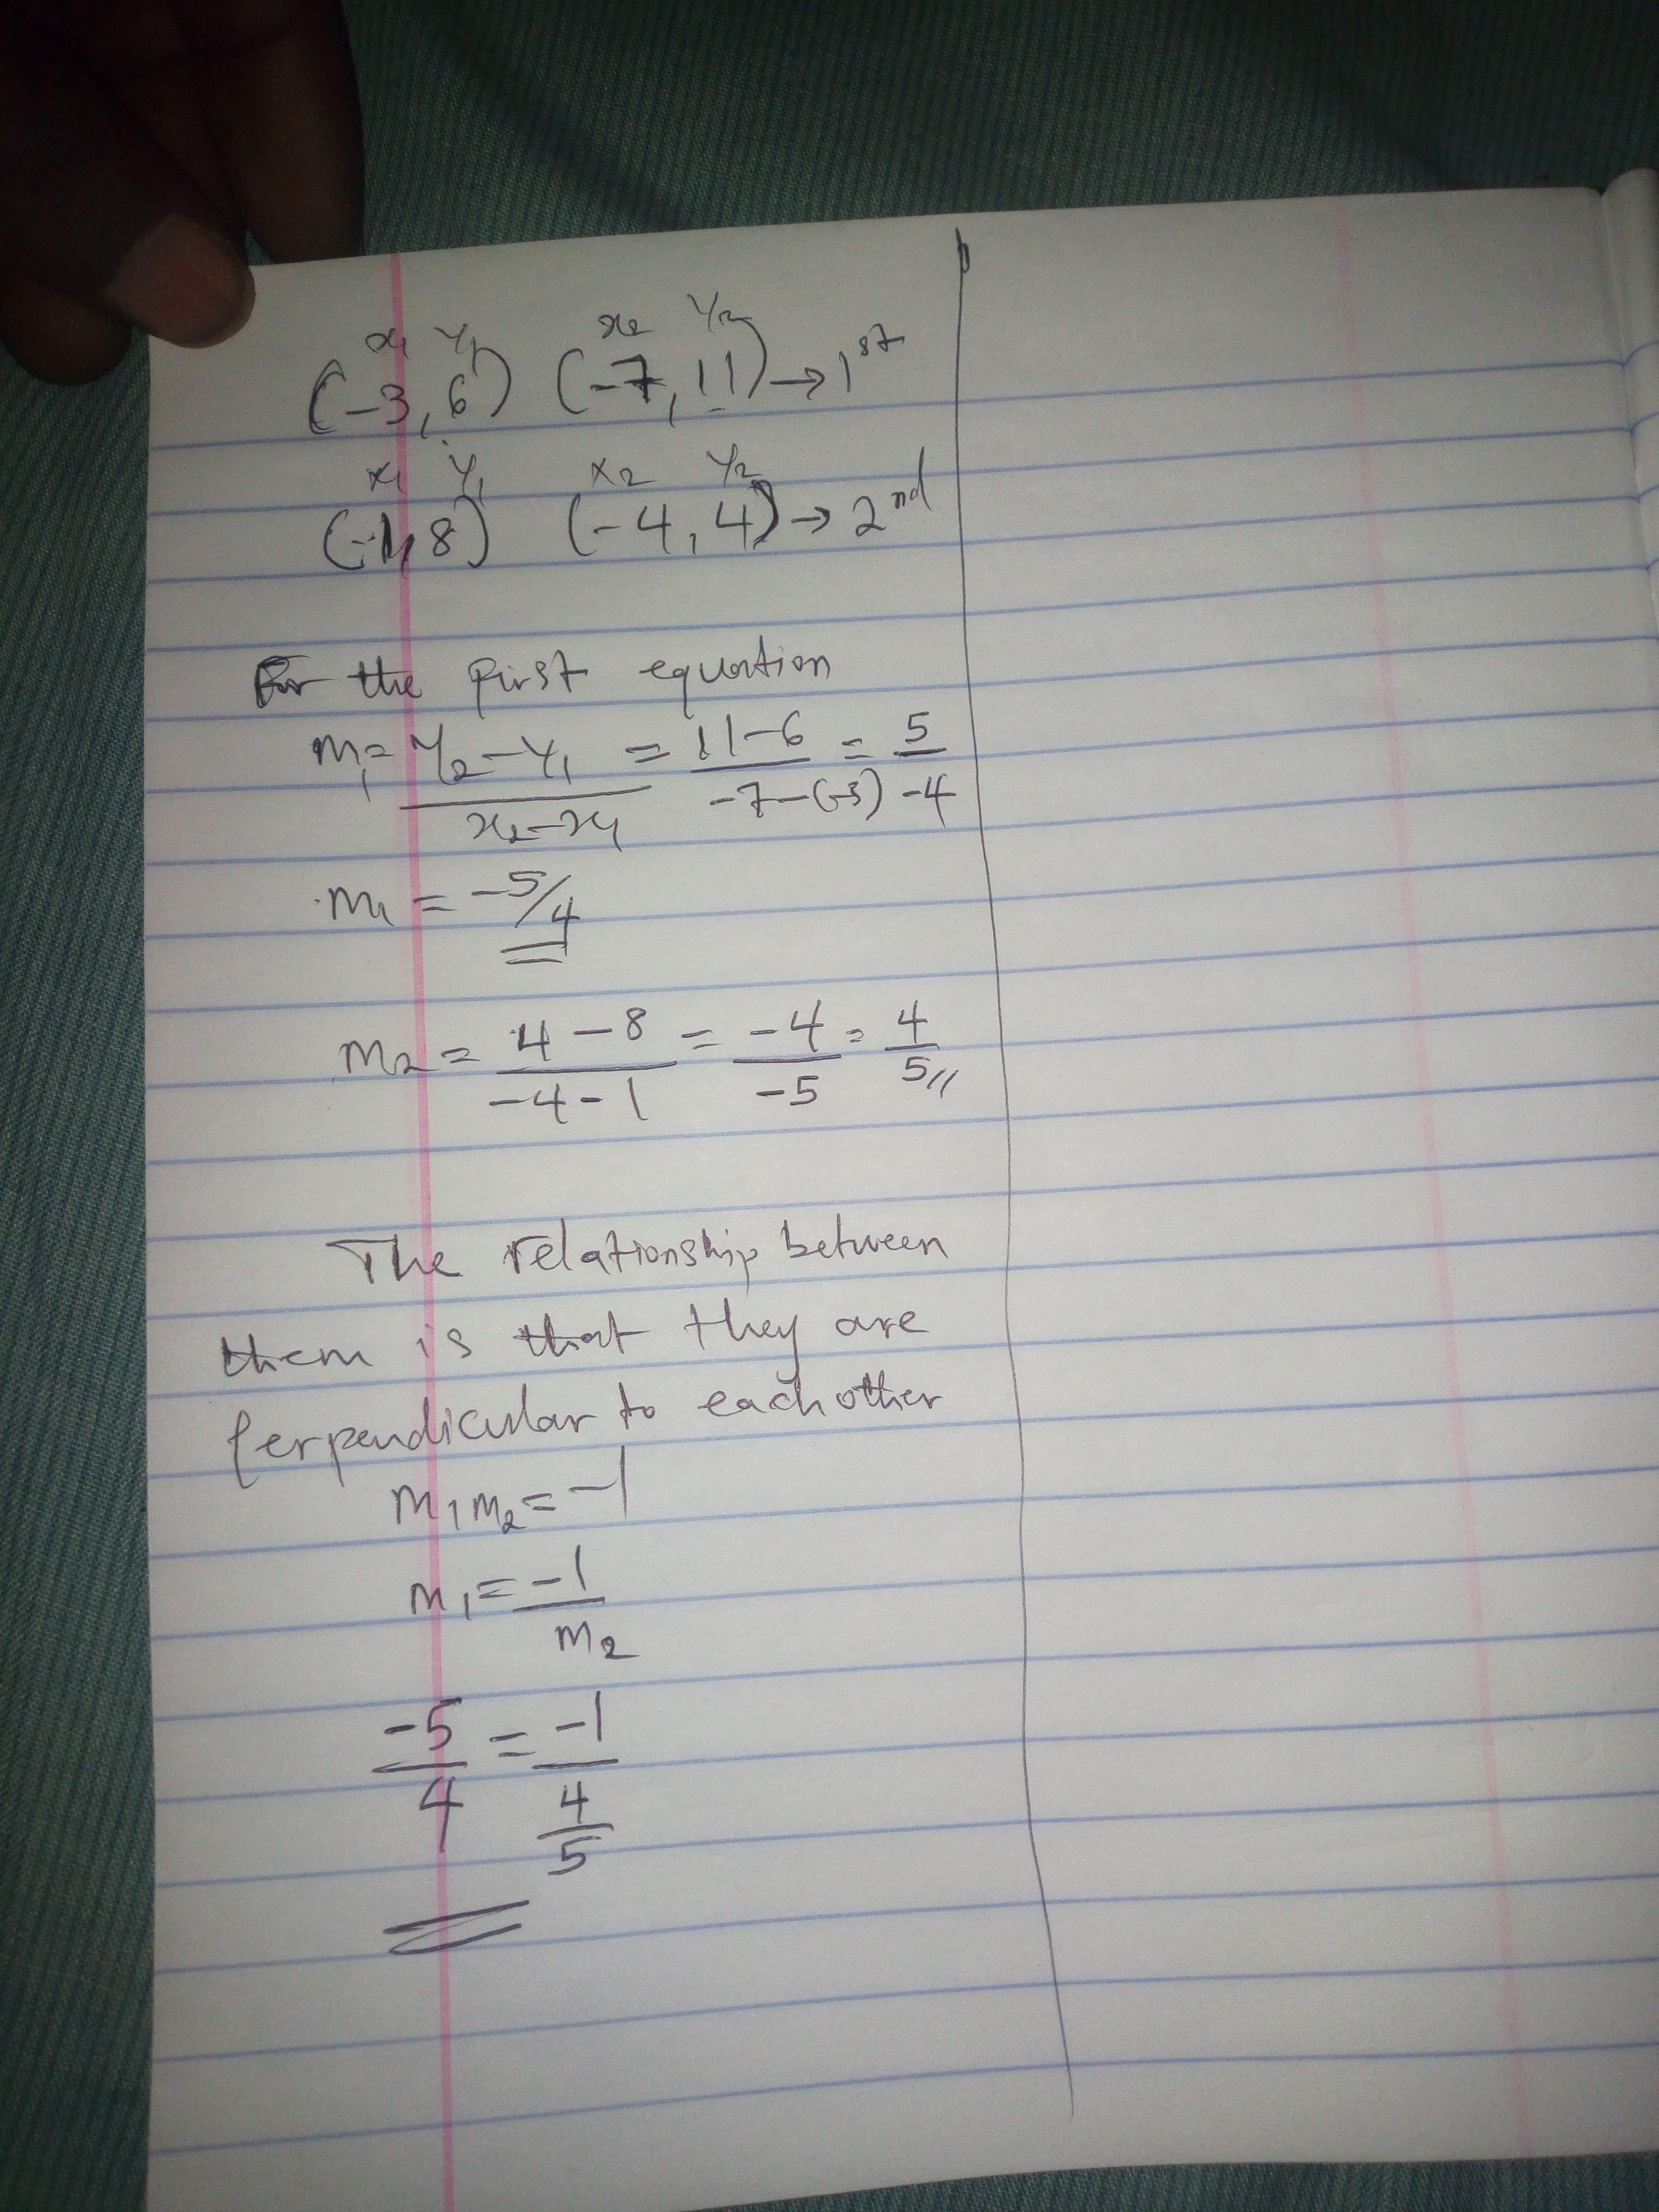 x₁ y₁ x₂ y₂
(-3, 6) (-7, 11) → 1st
x₁ y₁ x₂ y₂
(-1, 8) (-4, 4) → 2nd
For the first equation
m₁ = y₂ - y₁ = 11 - 6 = 5
x₂ - x₁ -7 - (-3) -4
m₁ = -5/4
m₂ = 4 - 8 = -4 = 4
-4 - 1 -5 5
The relationship between
them is that they are
perpendicular to each other
m₁m₂ = -1
m₁ = -1
m₂
-5 = -1
4 4
5